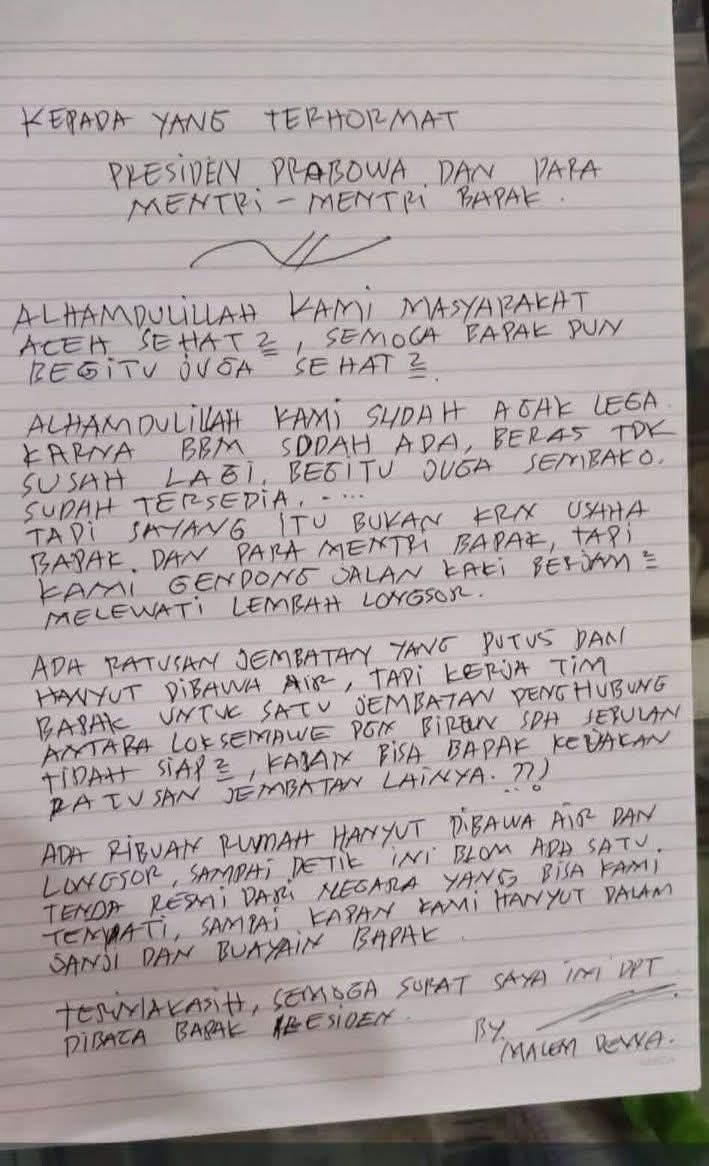 KEPADA YANG TERHORMAT
PRESIDEN PRABOWA DAN PARA
MENTRI - MENTRI BAPAK.
ALHAMDULILLAH KAMI MASYARAKAT
ACEH SEHAT2, SEMOGA BAPAK PUN
BEGITU JUGA SEHAT2.
ALHAMDULILLAH KAMI SUDAH AGAK LEGA
KARNA BBM SUDAH ADA, BERAS TDK
SUSAH LAGI, BEGITU JUGA SEMBAKO.
SUDAH TERSEDIA. ....
TAPI SAYANG ITU BUKAN KRN USAHA
BAPAK DAN PARA MENTRI BAPAK, TAPI
KAMI GENDONG JALAN KAKI BERJAM2
MELEWATI LEMBAH LONGSOR.
ADA RATUSAN JEMBATAN YANG PUTUS DAN
HANYUT DIBAWA AIR, TAPI KERJA TIM
BAPAK UNTUK SATU JEMBATAN PENGHUBUNG
ANTARA LOKSEMAWE DGN BIREUN SDH SEBULAN
TIDAK SIAP2, KAPAN BISA BAPAK KERJAKAN
RATUSAN JEMBATAN LAINYA. ??!
ADA RIBUAN RUMAH HANYUT DIBAWA AIR DAN
LONGSOR, SAMPAI DETIK INI BLOM ADA SATU
TENDA RESMI DARI NEGARA YANG BISA KAMI
TEMPATI, SAMPAI KAPAN KAMI HANYUT DALAM
JANJI DAN BUAYAIN BAPAK.
TERIMAKASIH, SEMOGA SURAT SAYA INI DPT
DIBACA BAPAK PRESIDEN.
BY.
MALEM DEWA.